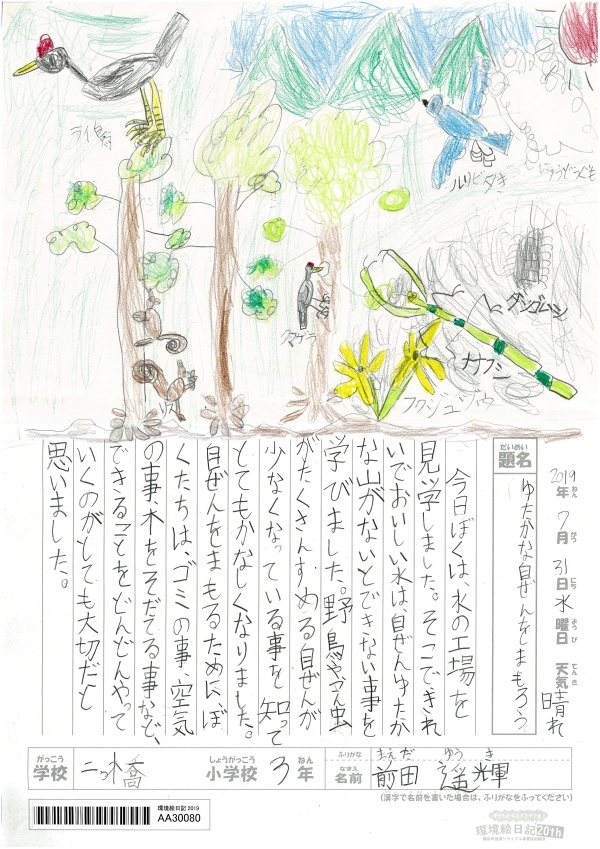 ライチョウ
ルリビタキ
にゅうどうぐも
クマゲラ
リス
ダンゴムシ
ナナフシ
フクジュソウ
2019年 7月 31日 水曜日 天気 晴れ
ねん がつ にち ようび てんき
だいめい
題名
ゆたかな自ぜんをまもろう
今日ぼくは、水の工場を
見学しました。そこできれ
いでおいしい水は、自ぜんゆたか
な山がないとできない事を
学びました。野鳥やこん虫
がたくさんすめる自ぜんが
少なくなっている事を知って
とてもかなしくなりました。
自ぜんをまもるためにぼ
くたちは、ゴミの事、空気
の事、木をそだてる事など、
できることをどんどんやって
いくのがとても大切だと
思いました。
がっこう しょうがっこう ねん
学校 二つ橋 小学校 3年
ふりがな まえだ ゆうき
なまえ
名前 前田 遥輝
(漢字で名前を書いた場合は、ふりがなをふってください)
環境絵日記 2019
AA30080
環境絵日記 20th